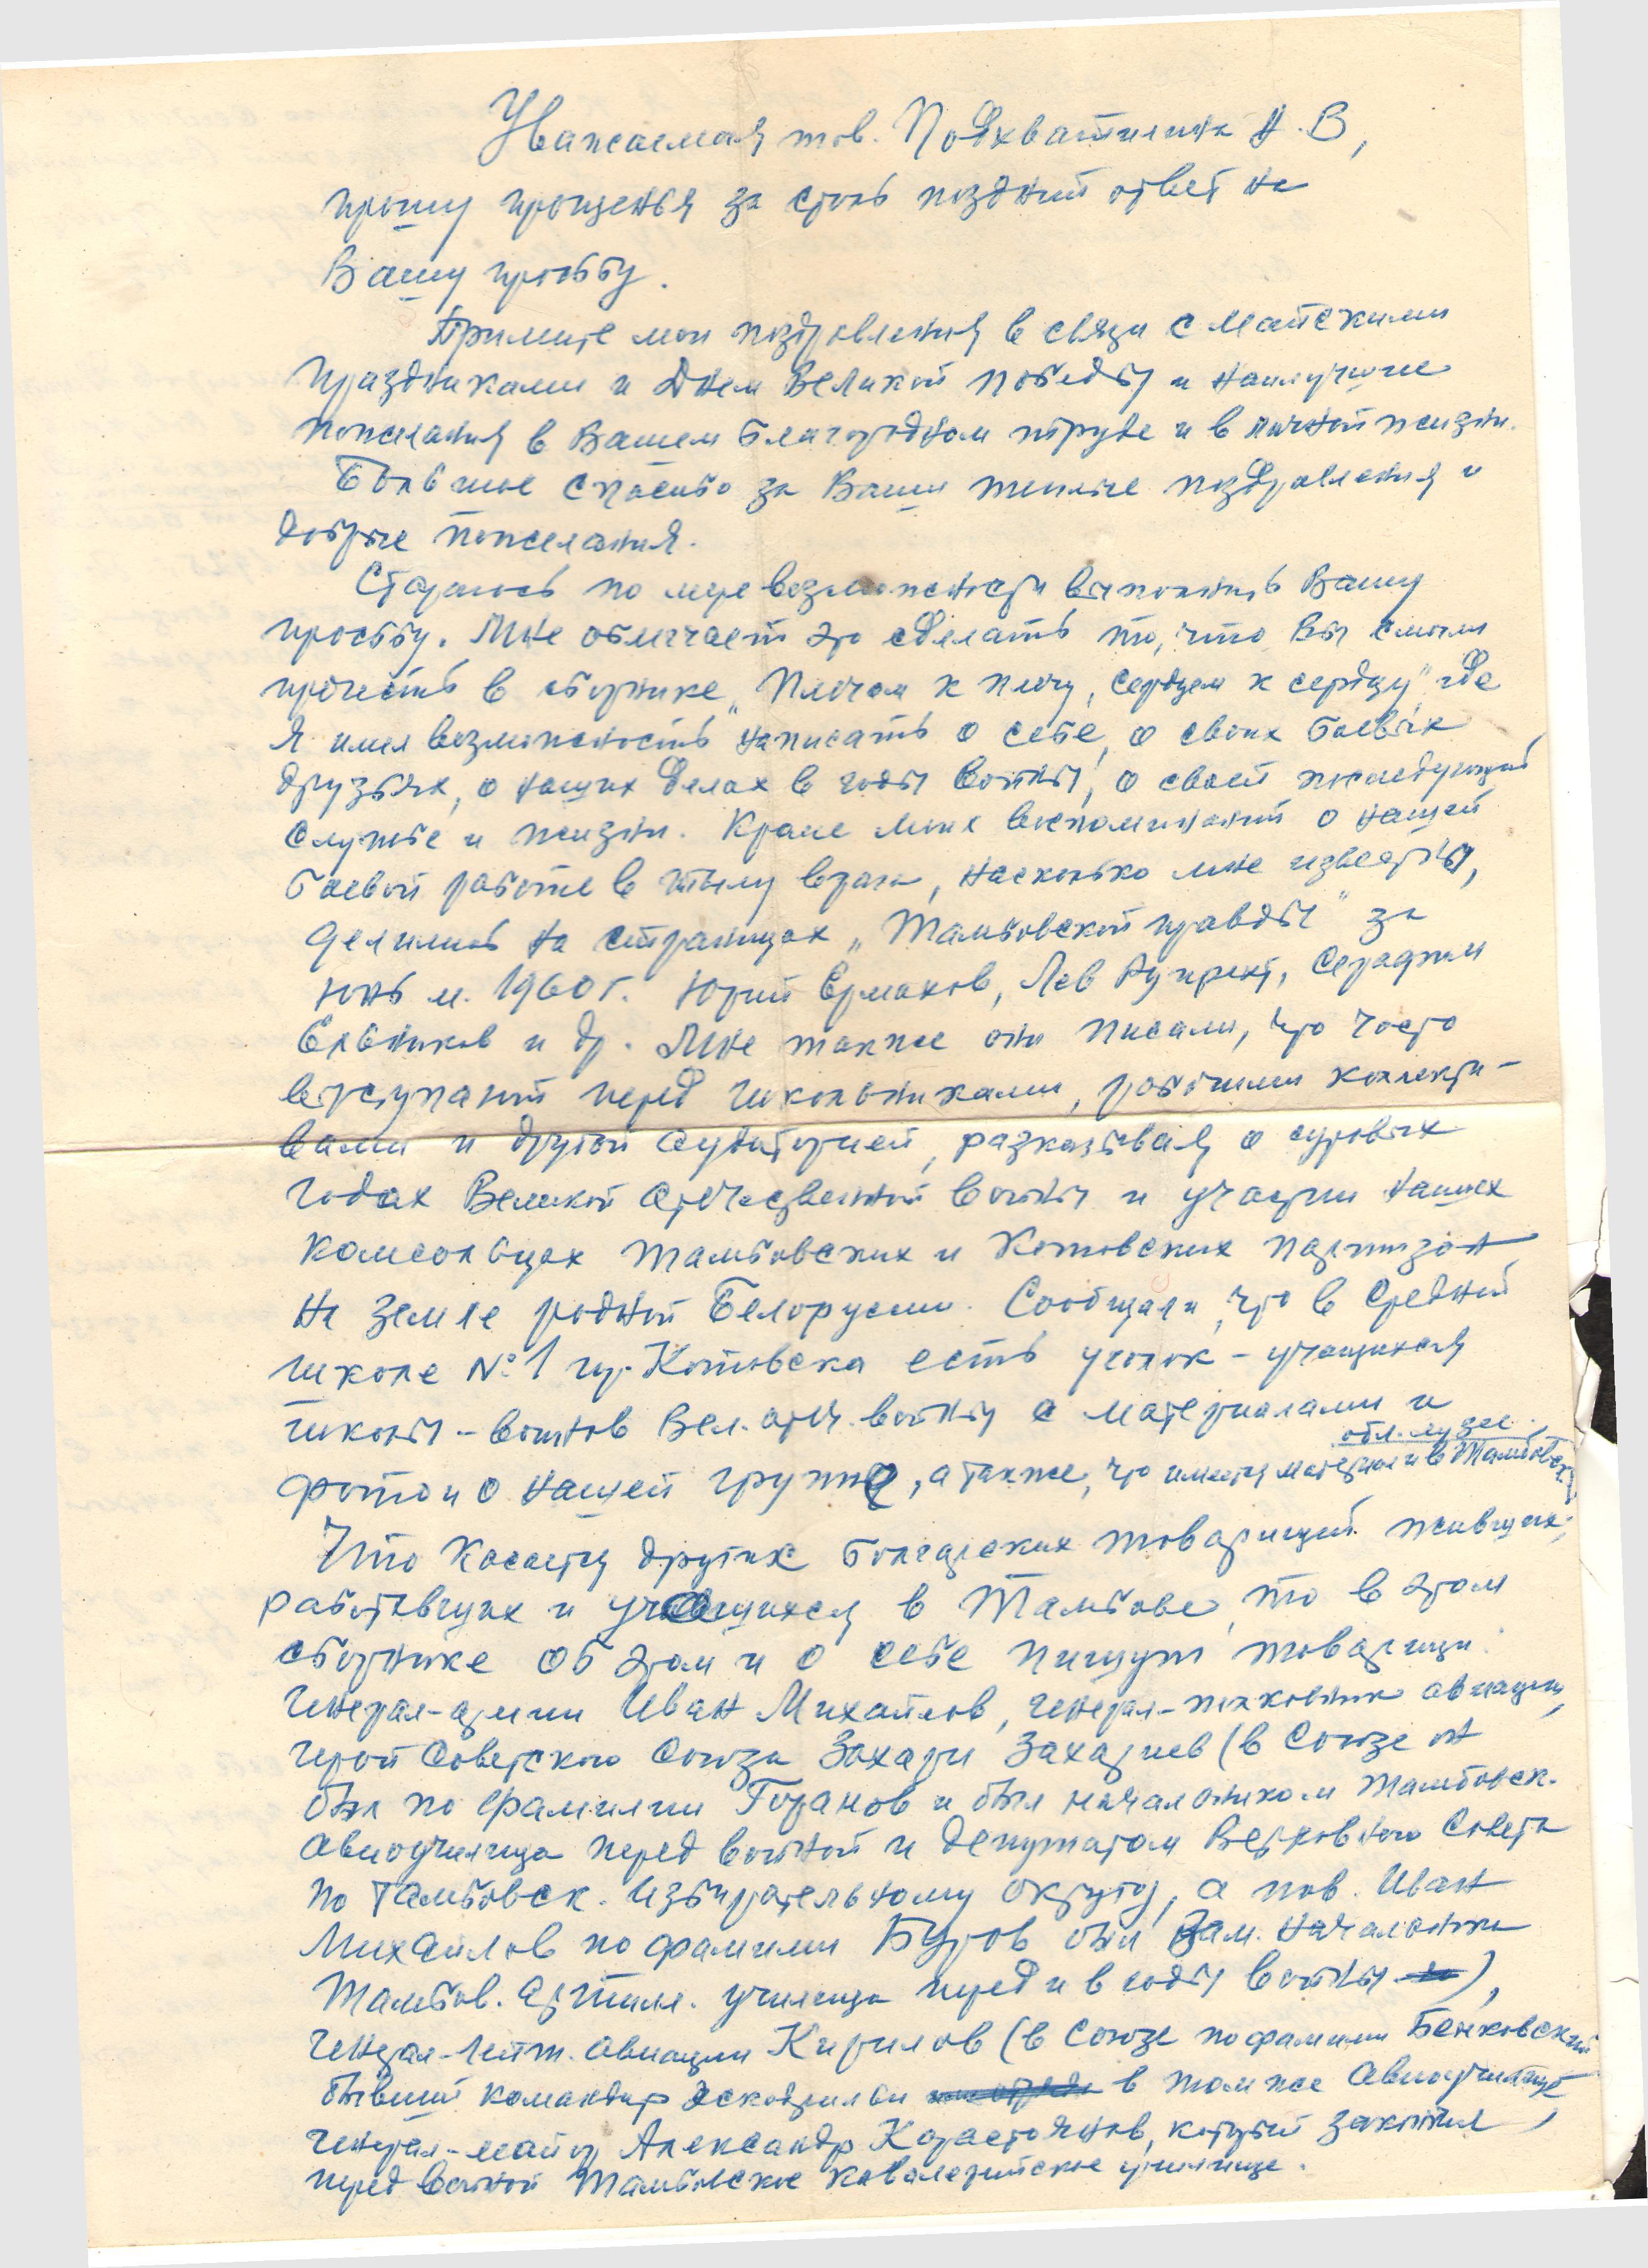 Уважаемая тов. Подхватилина Н. В,
прошу прощенья за столь поздний ответ на
Вашу просьбу.
Примите мои поздравления в связи с Майскими
праздниками и Днем Великой победы и наилучшие
пожелания в Вашем благородном труде и в личной жизни.
Большое спасибо за Ваши теплые поздравления и
добрые пожелания.
Стараюсь по мере возможности выполнить Вашу
просьбу. Мне облегчает это сделать то, что Вы смогли
прочесть в сборнике „Плечом к плечу, сердцем к сердцу" где
я имел возможность написать о себе, о своих боевых
друзьях, о наших делах в годы войны, о своей последующей
службе и жизни. Кроме моих воспоминаний о нашей
боевой работе в тылу врага, насколько мне известно,
делились на страницах „Тамбовской правды" за
июнь м. 1960 г. Юрий Ермаков, Лев Рупрехт, Серафим
Ельников и др. Мне также они писали, что часто
выступают перед школьниками, рабочими коллекти-
вами и другой аудиторией, разказывая о суровых
годах Великой Отечественной войны и участии наших
комсольцах Тамбовских и Котовских партизан
на земле родной Белорусии. Сообщали, что в средней
школе № 1 гр. Котовска есть уголок - учащихся
школы - воинов Вел. отеч. войны с материалами и
фото и о нашей группе, а также, что имеются материали и в Тамбовск.
обл. музее.
Что касается других болгарских товарищей живущих,
работавших и учащихся в Тамбове, то в этом
сборнике об этом и о себе пишут товарищи:
генерал-армии Иван Михайлов, генерал-полковник авиации,
герой Советского Союза Захари Захариев (в Союзе он
был по фамилии Горанов и был начальником Тамбовск.
Авиоучилища перед войной и депутатом Верховного Совета
по Тамбовск. избирательному округу, а тов. Иван
Михайлов по фамилии Буров был зам. начальника
Тамбов. артилл. училища перед и в годы войны),
генерал-лейт. авиации Кирилов (в Союзе по фамилии Бенковский
бывший командир эскадрильи в том же Авиоучилище,
генерал-майор Александр Карастоянов, который закончил
перед войной Тамбовское кавалерийское училище.